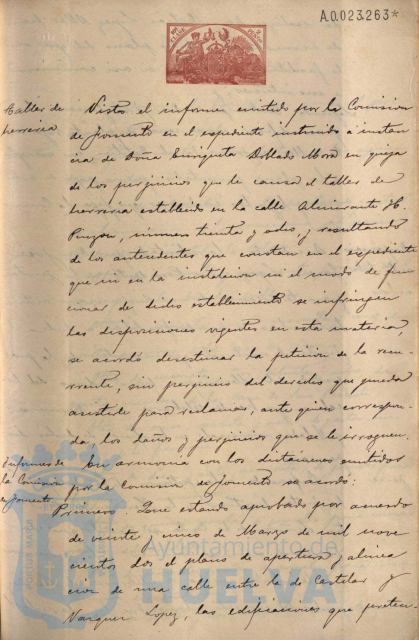 A.0.023.263*
Taller de
herrería
Visto el informe emitido por la Comision
de Fomento en el expediente instruido á instan
cia de Doña Enriqueta Doblado Mora en queja
de los perjuicios que le causa el taller de
herrería establecido en la calle Almirante H.
Pinzon, número treinta y ocho, y resultando
de los antecedentes que constan en el expediente
que ni en la instalacion ni el modo de fun
cionar de dicho establecimiento se infringen
las disposiciones vigentes en esta materia,
se acordó desestimar la peticion de la recu-
rrente, sin perjuicio del derecho que pueda
asistirle para reclamar, ante quien correspon-
da, los daños y perjuicios que se le irroguen.
Informes de
la Comision
de Fomento
En armonia con los dictámenes emitidos
por la Comision de Fomento se acordó:
Primero. Que estando aprobado por acuerdo
de veinte y cinco de Marzo de mil nove
cientos dos el plano de apertura y alinea
cion de una calle entre la de Castelar y
Vazquez Lopez, las edificaciones que preten
Ayuntamiento de
HUELVA